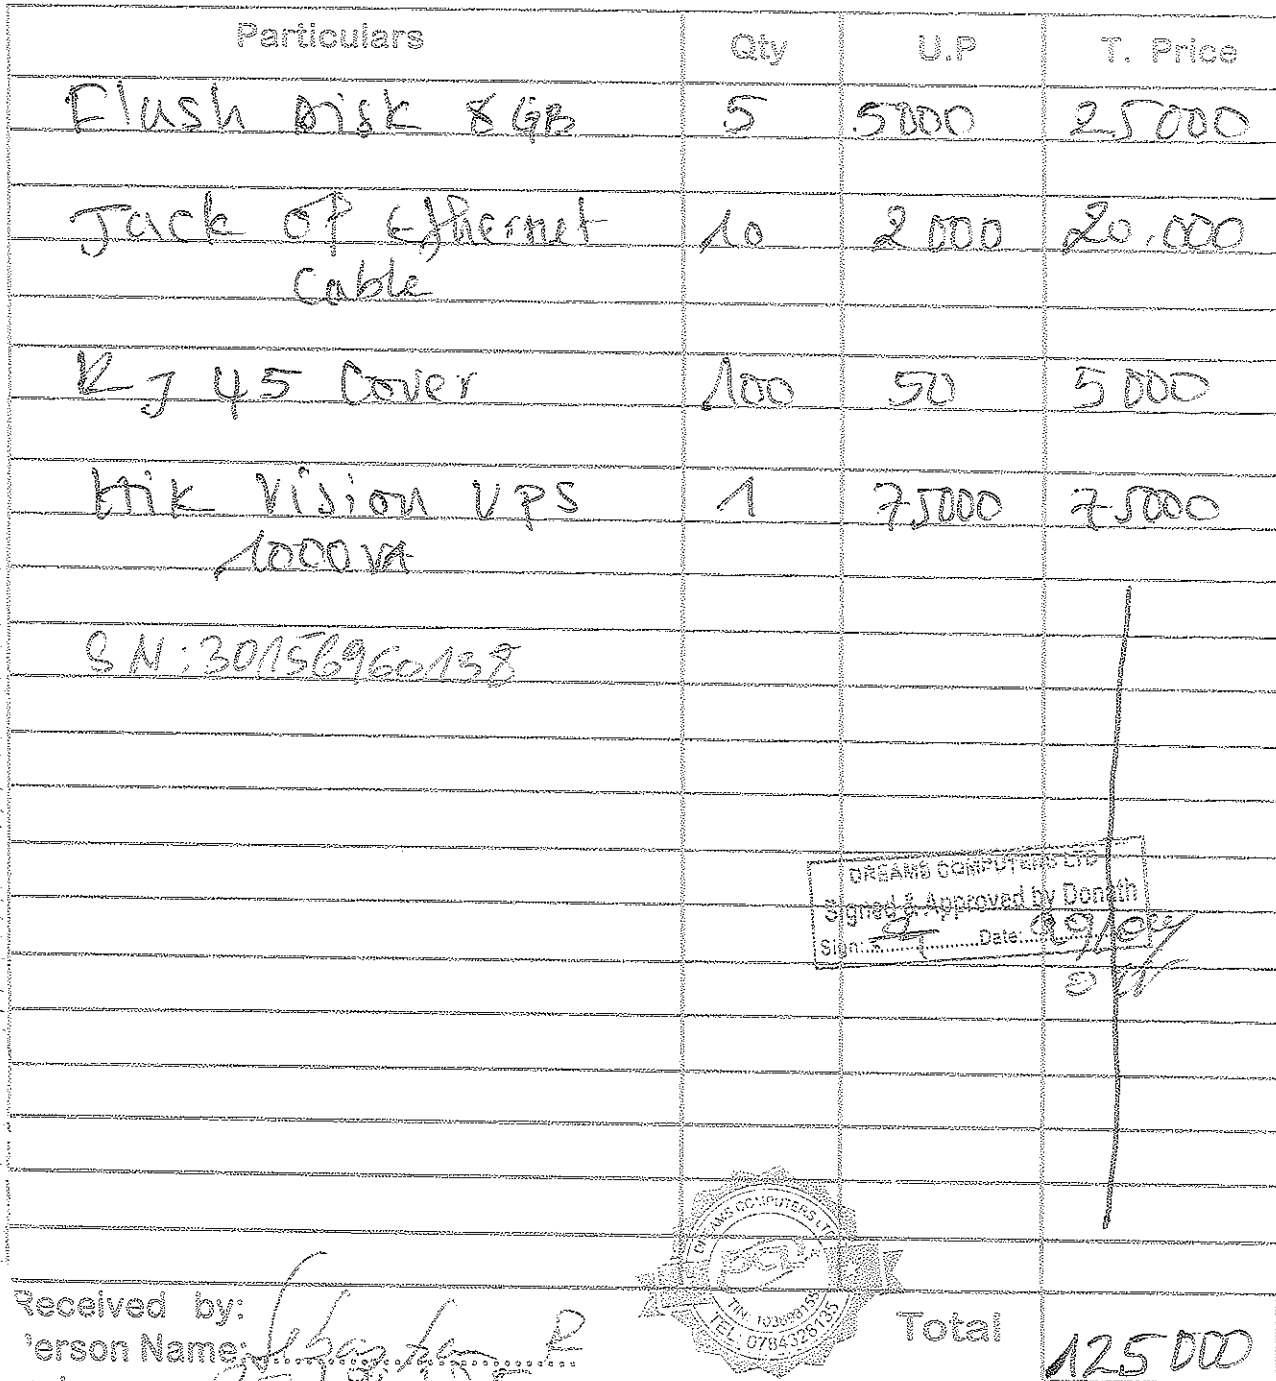 Particulars Qty U.P T. Price
Flash Disk 8 GB 5 5000 25000
Jack of Ethernet 10 2000 20.000
Cable
RJ 45 Cover 100 50 5000
Hik Vision UPS 1 75000 75000
1000VA
SN:30156960138
DREAMS COMPUTERS LTD
Signed & Approved by Donath
Sign: Date:
DREAMS COMPUTERS LTD
TEL: 0784326135
Received by:
Person Name:
Total 125000